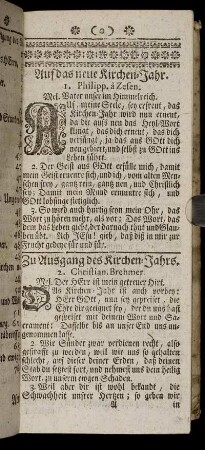 (2)
Auf das neue Kirchen-Jahr.
1. Philipp. à Zesen.
Mel. Vater unser im Himmelreich.
Auf, meine Seele, sey erfreut, das
Kirchen-Jahr wird nun erneut,
da dir aufs neu das Heil-Wort
klingt, das dich erneut, das dich
verjüngt, ja das aus GOtt dich
neu gebiert, und selbst zu GOtt ins
Leben führt.
2. Der Geist aus GOtt erfülle mich, damit
mein Geist erneure sich, und ich, vom alten
Menschen frey, gantz rein, gantz neu, und Christlich
sey: Damit mein Mund ermuntre sich, und
GOtt lobsinge stetiglich.
3. So mach auch hurtig fort mein Ohr, das
Wort zu hören
das Leben giebt, der darnach thut und Glau-
ben übt. Ach JEsu! gieb, daß diß in mir zur
Frucht gedeye für und für.
Zu Ausgang des Kirchen-Jahrs.
2. Christian. Brehmer
Mel. Der HErr ist mein getreuer Hirt.
Das Kirchen-Jahr ist auch vorbey:
HErr GOtt, nun sey gepreiset, die
Ehre dir geeignet sey, der du uns hast
gespeiset mit deinem Wort und Sa-
crament: Dasselbe bis an unser End uns an-
genommen laß.
2. Wir Sünder zwar verdienen recht, also
gestrafft zu werden, weil wir uns so gehalten
schlecht, auf dieser deiner Erden, daß deinen
Stab du setzest fort, und nehmest uns dein heilig
Wort, zu unserm ewgen Schaden.
3. Weil aber dir ist wohl bekandt, die
Schwachheit unsrer Hertzen; so geben wir
A
in